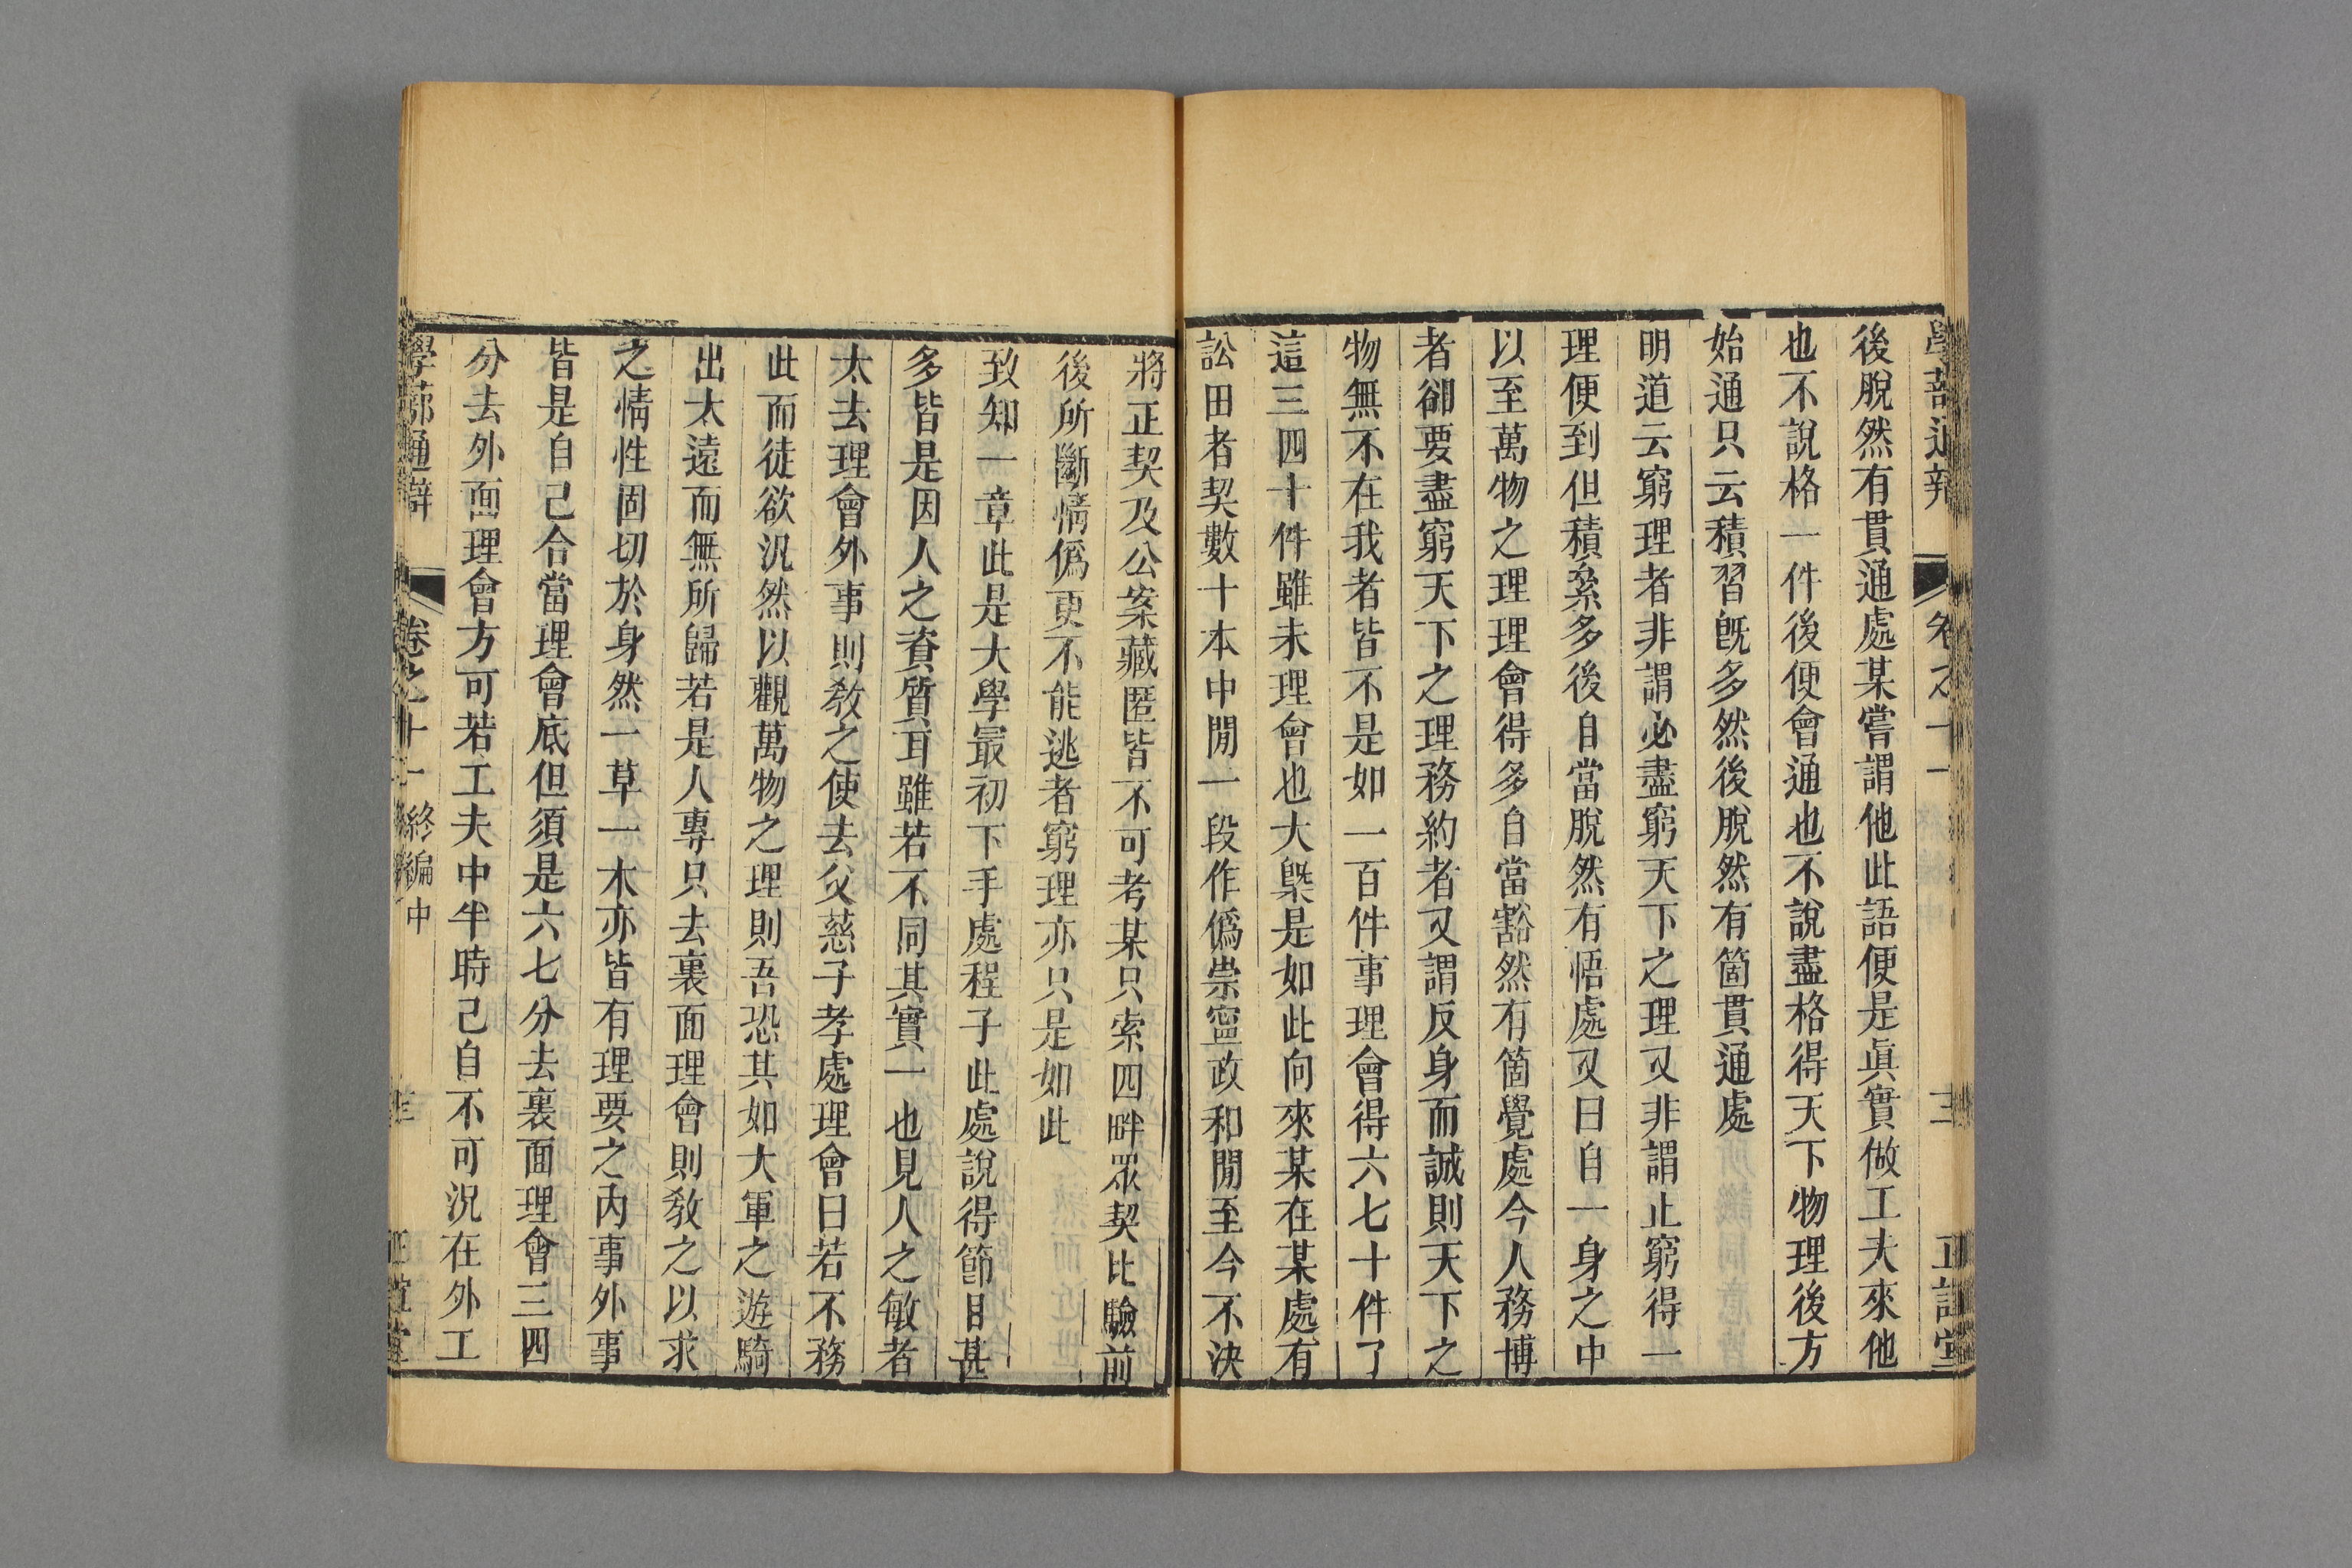 後脫然有貫通處某嘗謂他此語便是眞實做工夫來他
也不說格一件後便會通也不說盡格得天下物理後方
始通只云積習旣多然後脫然有箇貫通處
明道云窮理者非謂必盡窮天下之理又非謂止窮得一
理便到但積絫多後自當脫然有悟處又曰自一身之中
以至萬物之理理會得多自當豁然有箇覺處今人務博
者卻要盡窮天下之理務約者又謂反身而誠則天下之
物無不在我者皆不是如一百件事理會得六七十件了
這三四十件雖未理會也大槩是如此向來某在某處有
訟田者契數十本中閒一段作僞崇寧政和閒至今不決
將正契及公案藏匿皆不可考某只索四畔眾契比驗前
後所斷情僞更不能逃者窮理亦只是如此
致知一章此是大學最初下手處程子此處說得節目甚
多皆是因人之資質耳雖若不同其實一也見人之敏者
太去理會外事則敎之使去父慈子孝處理會曰若不務
此而徒欲汎然以觀萬物之理則吾恐其如大軍之遊騎
出太遠而無所歸若是人專只去裏面理會則敎之以求
之情性固切於身然一草一木亦皆有理要之內事外事
皆是自己合當理會底但須是六七分去裏面理會三四
分去外面理會方可若工夫中半時已自不可況在外工
學蔀通辯
卷之十一
終編中
正誼堂